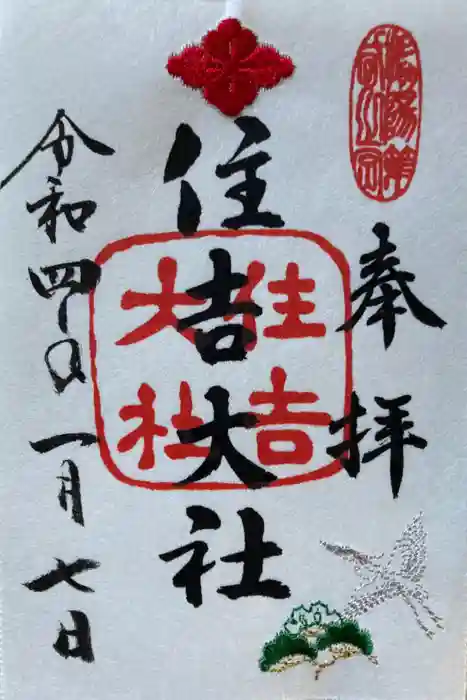 奉拝
住吉大社
住吉
大社
令和四年一月七日